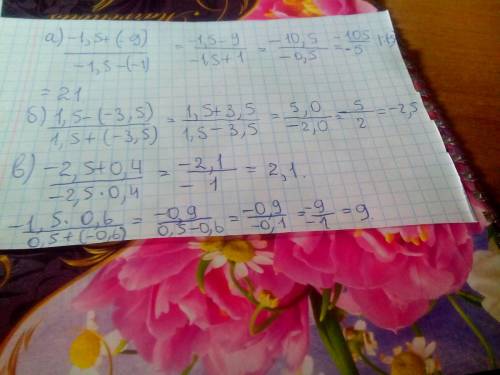 а) (-1,5+(-9))/(-1,5-(-1)) = (-1,5-9)/(-1,5+1) = (-10,5)/(-0,5) = (-105)/(-5)
= 21
б) (1,5-(-3,5))/(1,5+(-3,5)) = (1,5+3,5)/(1,5-3,5) = 5,0/(-2,0) = -5/2 = -2,5
в) (-2,5+0,4)/(-2,5·0,4) = (-2,1)/(-1) = 2,1.
(-1,5·0,6)/(0,5+(-0,6)) = (-0,9)/(0,5-0,6) = (-0,9)/(-0,1) = (-9)/(-1) = 9